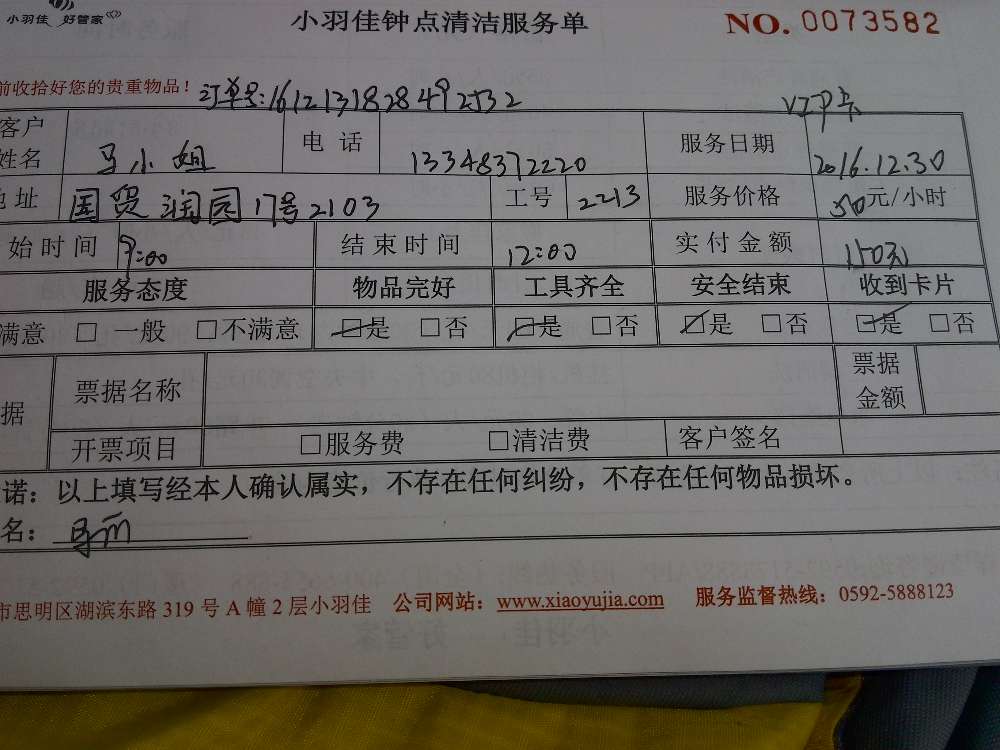 小羽佳 好管家 小羽佳钟点清洁服务单 NO. 0073582
前收拾好您的贵重物品! 订单号:1612131828492532 VIP卡
客户姓名 马小姐 电话 13348372220 服务日期 2016.12.30
地址 国贸润园17号2103 工号 2213 服务价格 50元/小时
始时间 9:00 结束时间 12:00 实付金额 150元
服务态度 物品完好 工具齐全 安全结束 收到卡片
满意 □ 一般 □不满意 ☑是 □否 ☑是 □否 ☑是 □否 ☑是 □否
据 票据名称 票据金额
开票项目 □服务费 □清洁费 客户签名
诺:以上填写经本人确认属实,不存在任何纠纷,不存在任何物品损坏。
名:
市思明区湖滨东路 319 号 A 幢 2 层小羽佳 公司网站:www.xiaoyujia.com 服务监督热线:0592-5888123